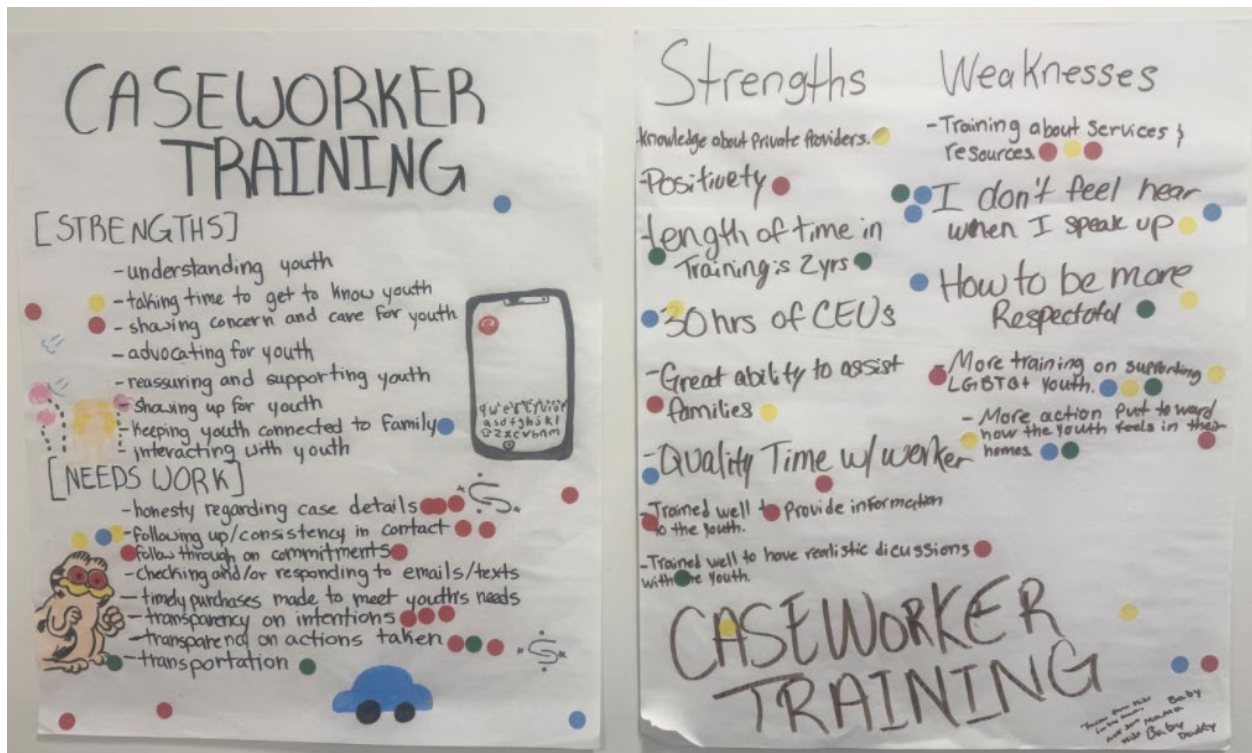 CASEWORKER
TRAINING
[STRENGTHS]
-understanding youth
-taking time to get to know youth
-showing concern and care for youth
-advocating for youth
-reassuring and supporting youth
-showing up for youth
-keeping youth connected to family
-interacting with youth
[NEEDS WORK]
-honesty regarding case details
-following up/consistency in contact
-follow through on commitments
-checking and/or responding to emails/texts
-timely purchases made to meet youth's needs
-transparency on intentions
-transparency on actions taken
-transportation
qwertyuiop
asdfghjkl
zxcvbnm
Strengths
-knowledge about Private Providers.
-Positivety
-length of time in
Training is 2yrs
-30 hrs of CEUs
-Great ability to assist
families
-Quality Time w/ worker
-Trained well to Provide information
to the youth.
-Trained well to have realistic dicussions
with the youth.
Weaknesses
-Training about Services &
resources.
-I don't feel hear
when I speak up
-How to be more
Respectoful
-More training on supporting
LGBTQ+ youth.
-More action put toward
how the youth feels in their
homes.
CASEWORKER
TRAINING
Baby
Mama
Baby
Daddy